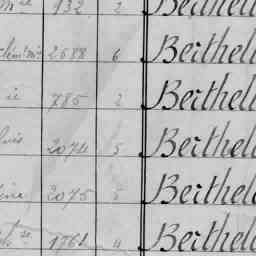 932 2 Berthel
2688 6 Berthel
785 2 Berthel
2074 5 Berthel
2075 5 Berthel
1764 4 Berthel